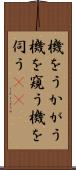 機をうかがう
機を窺う機を
伺う